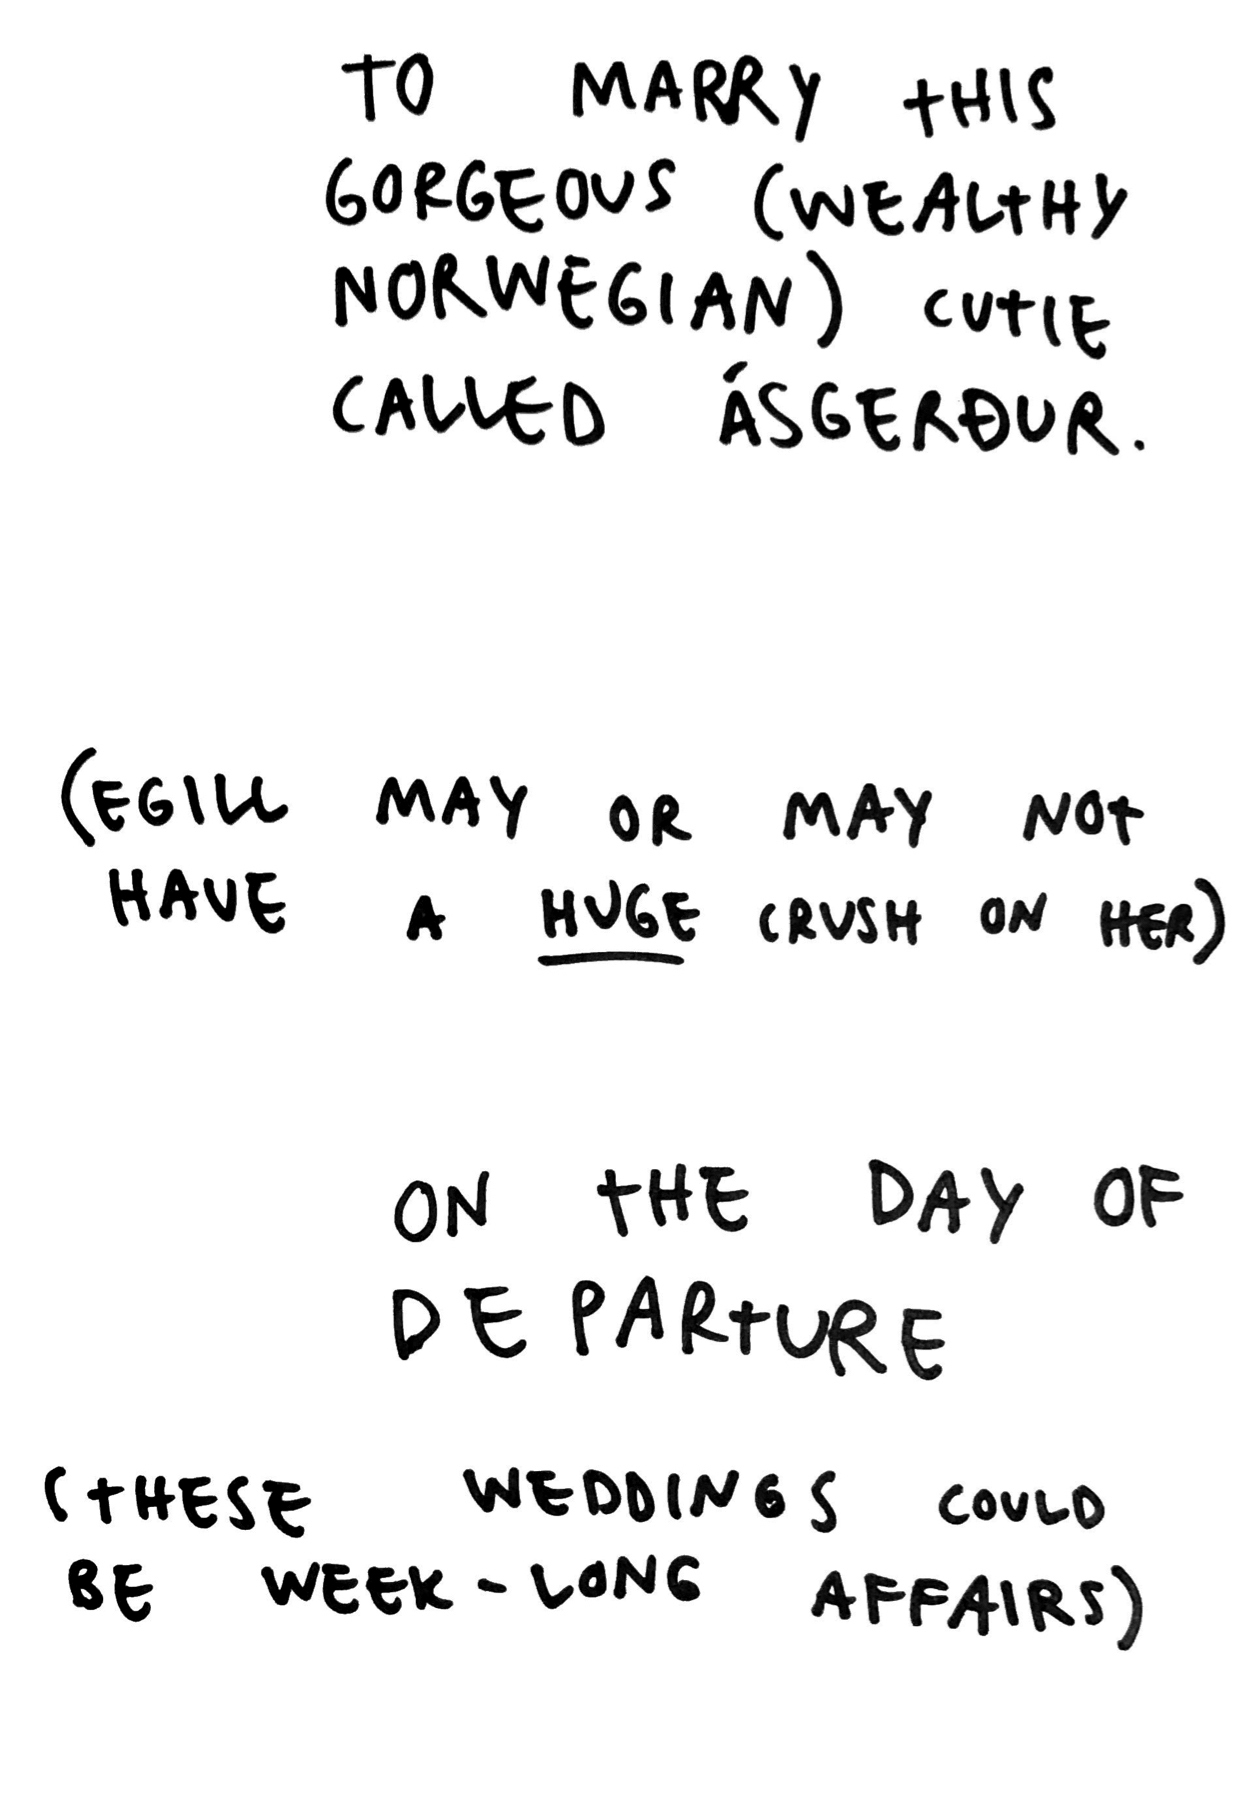 TO MARRY THIS
GORGEOUS (WEALTHY
NORWEGIAN) CUTIE
CALLED ÁSGERÐUR.
(EGILL MAY OR MAY NOT
HAVE A HUGE CRUSH ON HER)
ON THE DAY OF
DEPARTURE
(THESE WEDDINGS COULD
BE WEEK-LONG AFFAIRS)